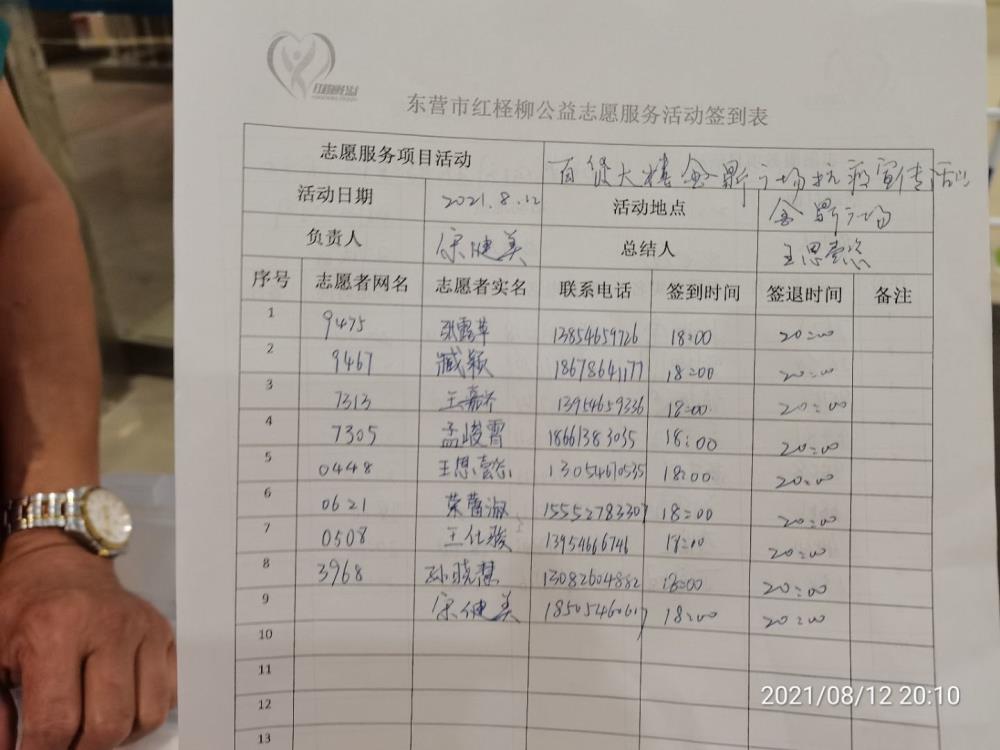 红柽柳公益
东营市红柽柳公益志愿服务活动签到表
志愿服务项目活动 百货大楼金鼎广场抗疫宣传活动
活动日期 2021.8.12 活动地点 金鼎广场
负责人 宋健美 总结人 王思懿
序号 志愿者网名 志愿者实名 联系电话 签到时间 签退时间 备注
1 9475 张露革 13854659726 18:00 20:00
2 9467 臧颖 18678641177 18:00 20:00
3 7313 王嘉 13954659336 18:00 20:00
4 7305 孟峻霄 18661383035 18:00 20:00
5 0448 王思懿 13054670535 18:00 20:00
6 0621 荣蕾淑 15552783307 18:00 20:00
7 0508 王仕骏 13954666746 18:00 20:00
8 3968 孙晓慧 13082604882 18:00 20:00
9 宋健美 18505460617 18:00 20:00
10
11
12
13
2021/08/12 20:10